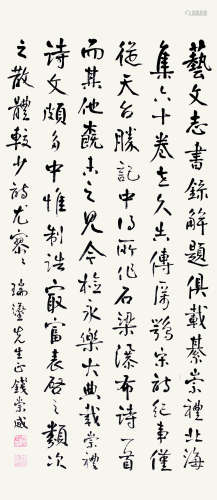 藝文志書錄解題俱載綦崇禮北海
集六十卷立久失傳厲鶚宋詩紀事僅
從天台勝記中得所作石梁瀑布詩一首
而其他槩未之見今檢永樂大典載崇禮
詩文頗多中惟制誥最富表啓之類次
之散體較少詩尤寥寥 瑞鎏先生正 錢崇威